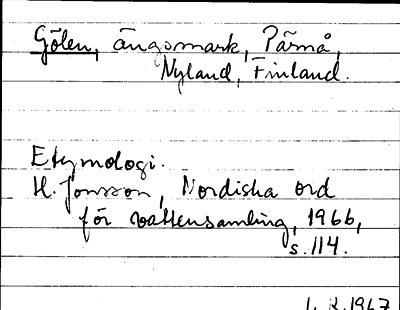 Gölen, ängsmark, Pärnå,
Nyland, Finland.
Etymologi.
H. Jonsson, Nordiska ord
för vattensamling, 1966,
s. 114.
1967